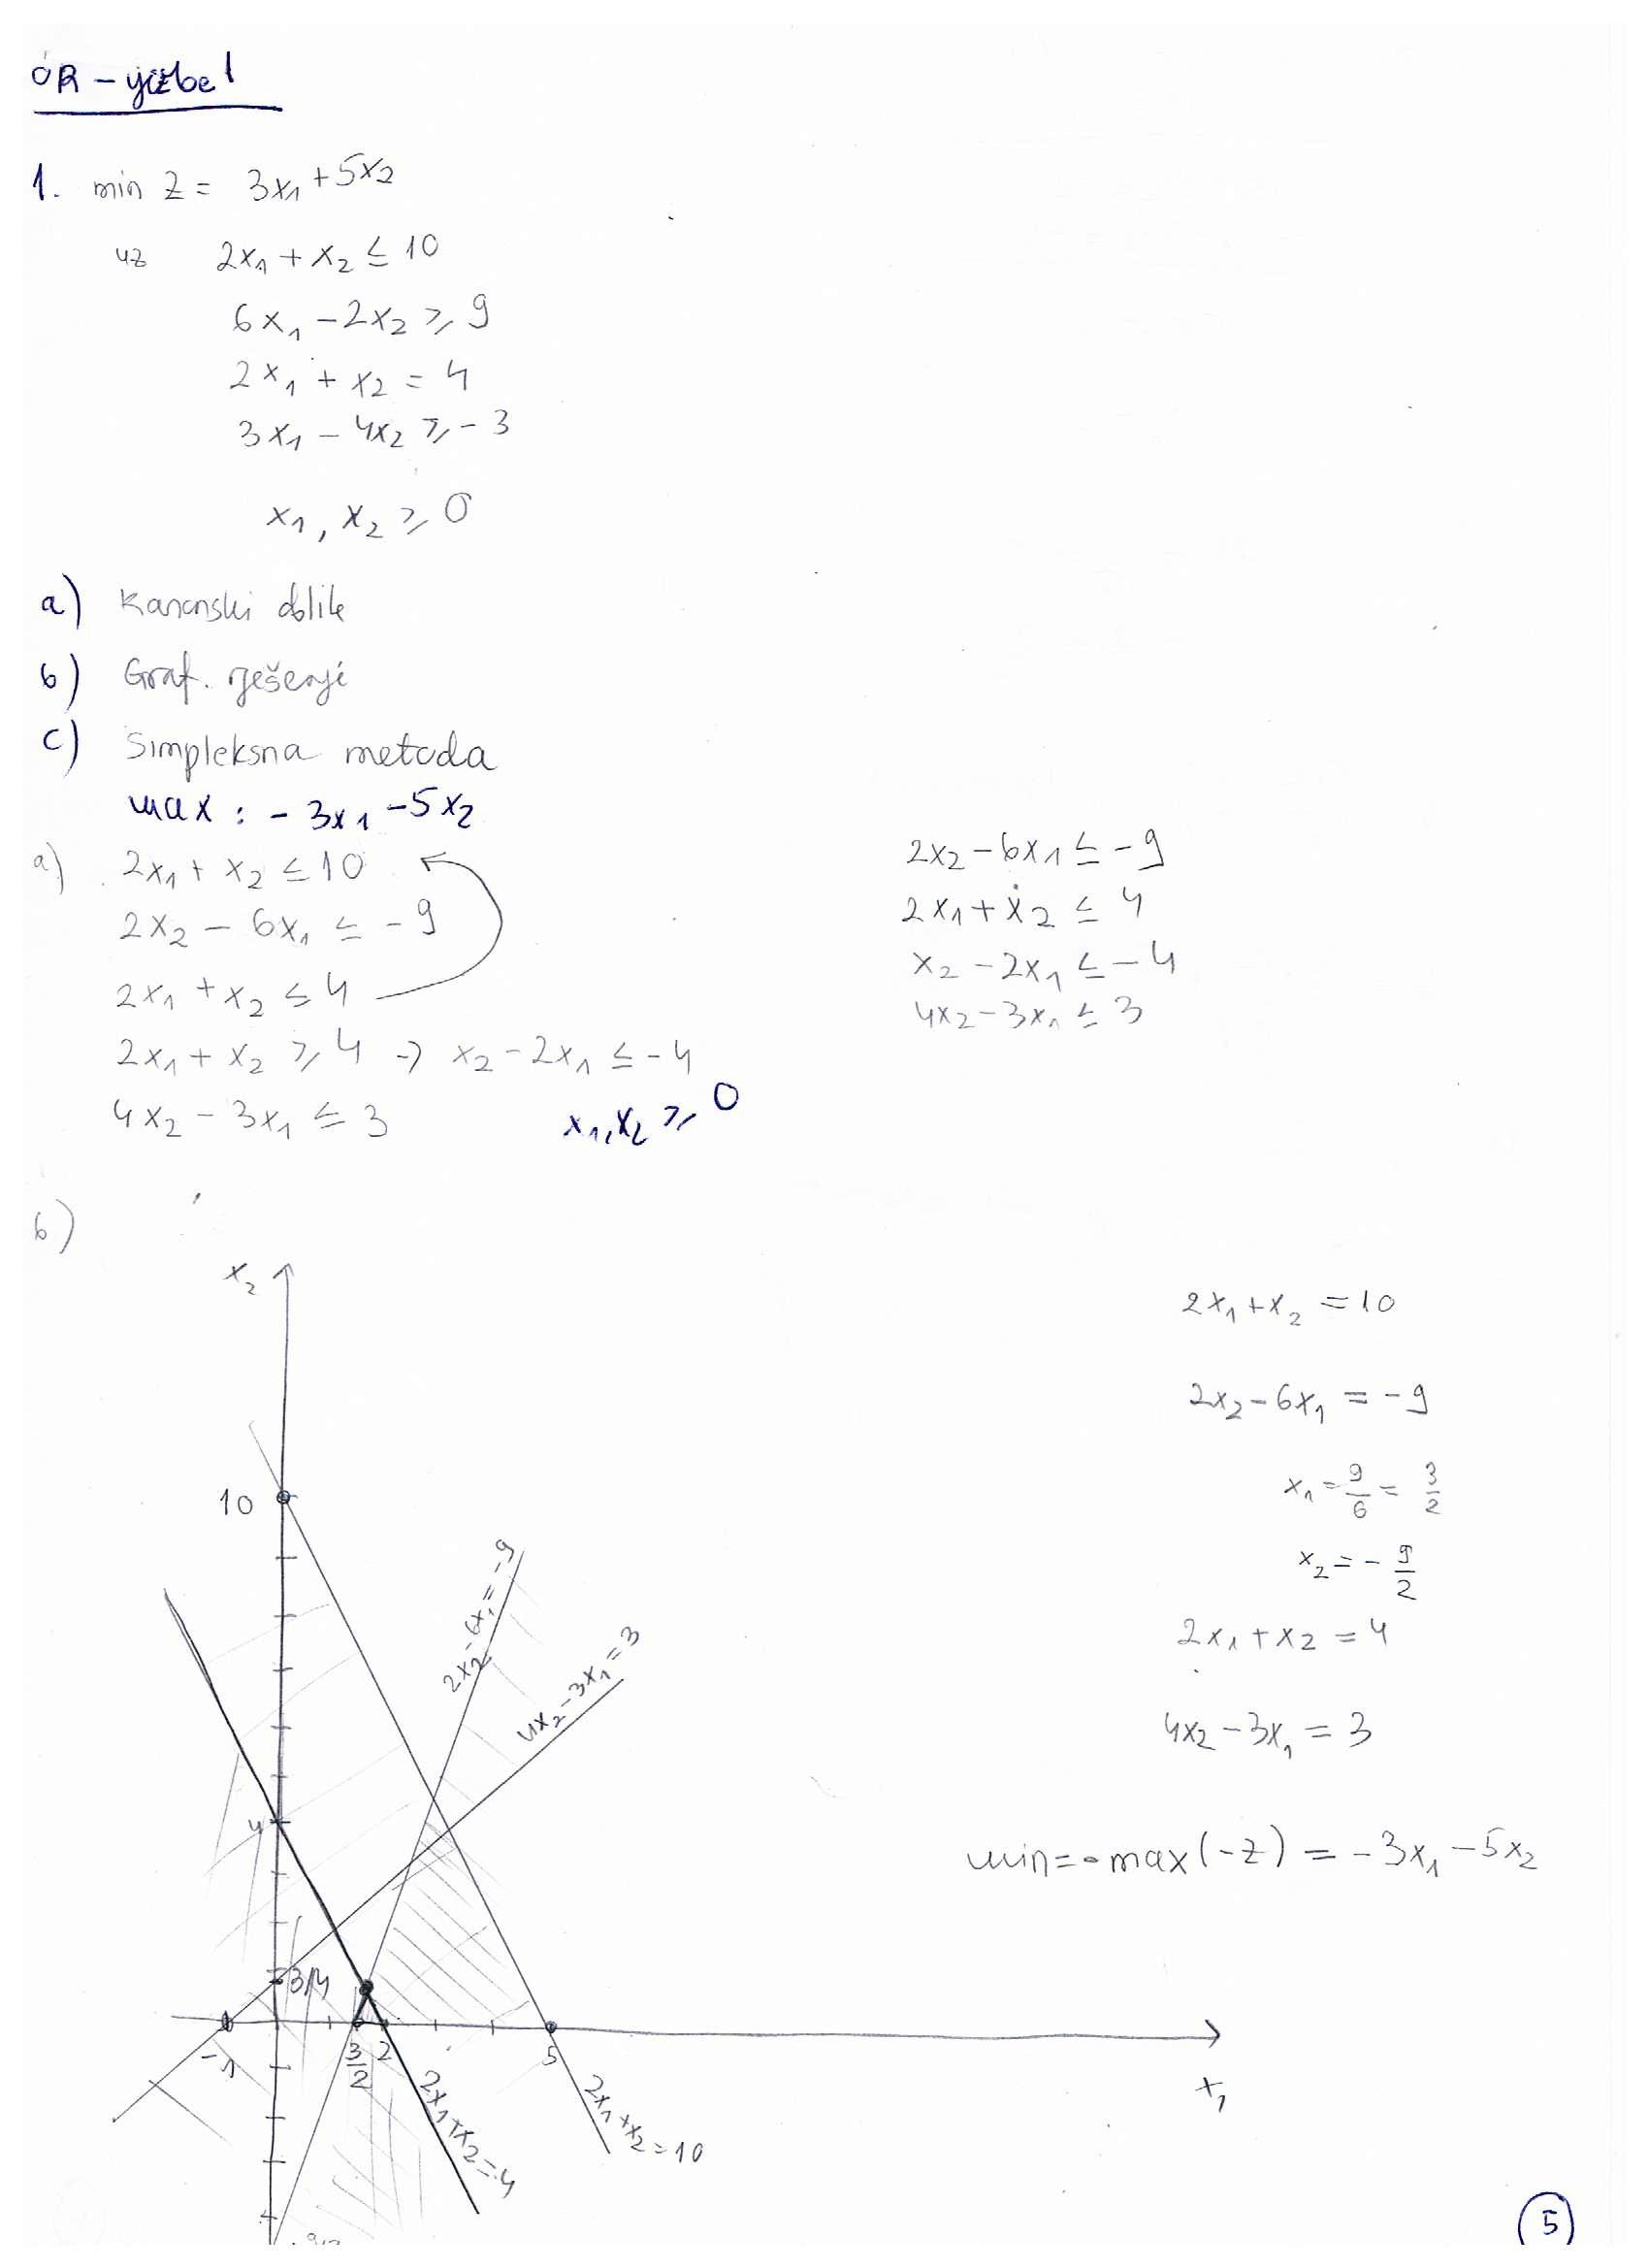 1. min z = 3x₁ + 5x₂
uz 2x₁ + x₂ ≤ 10
6x₁ - 2x₂ ≥ 9
2x₁ + x₂ = 4
3x₁ - 4x₂ ≥ -3
x₁, x₂ ≥ 0
a) Kanonski oblik
b) Graf. rješenje
c) Simpleksna metoda
max : -3x₁ - 5x₂
a) 2x₁ + x₂ ≤ 10
2x₂ - 6x₁ ≤ -9
2x₁ + x₂ ≤ 4
2x₁ + x₂ ≥ 4 → x₂ - 2x₁ ≤ -4
4x₂ - 3x₁ ≤ 3
x₁, x₂ ≥ 0
2x₂ - 6x₁ ≤ -9
2x₁ + x₂ ≤ 4
x₂ - 2x₁ ≤ -4
4x₂ - 3x₁ ≤ 3
b)
x₂
10
4
3/4
-1
3/2
2
5
x₁
2x₂ - 6x₁ = -9
4x₂ - 3x₁ = 3
2x₁ + x₂ = 4
2x₁ + x₂ = 10
2x₁ + x₂ = 10
2x₂ - 6x₁ = -9
x₁ = 9/6 = 3/2
x₂ = - 9/2
2x₁ + x₂ = 4
4x₂ - 3x₁ = 3
min = - max (-z) = -3x₁ - 5x₂
5